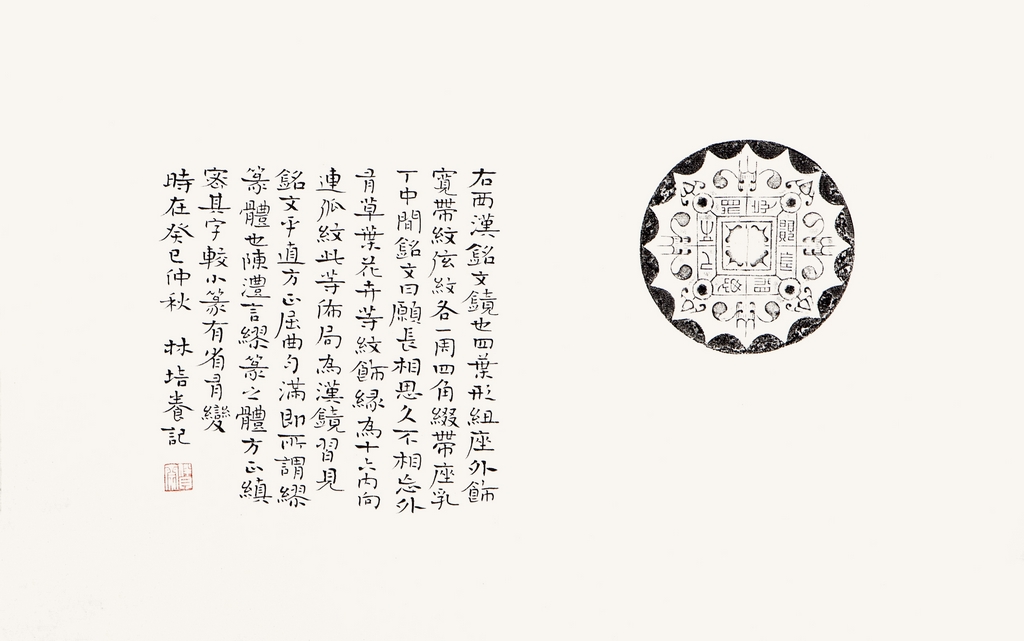 右西漢銘文鏡也四葉形組座外飾
寬帶紋弦紋各一周四角綴帶座乳
丁中間銘文曰願長相思久不相忘外
有草葉花卉等紋飾緣為十六內向
連弧紋此等佈局為漢鏡習見
銘文乎直方正屈曲勻滿即所謂繆
篆體也陳澧言繆篆之體方正縝
密其字較小篆有省有變
時在癸巳仲秋 林培養記